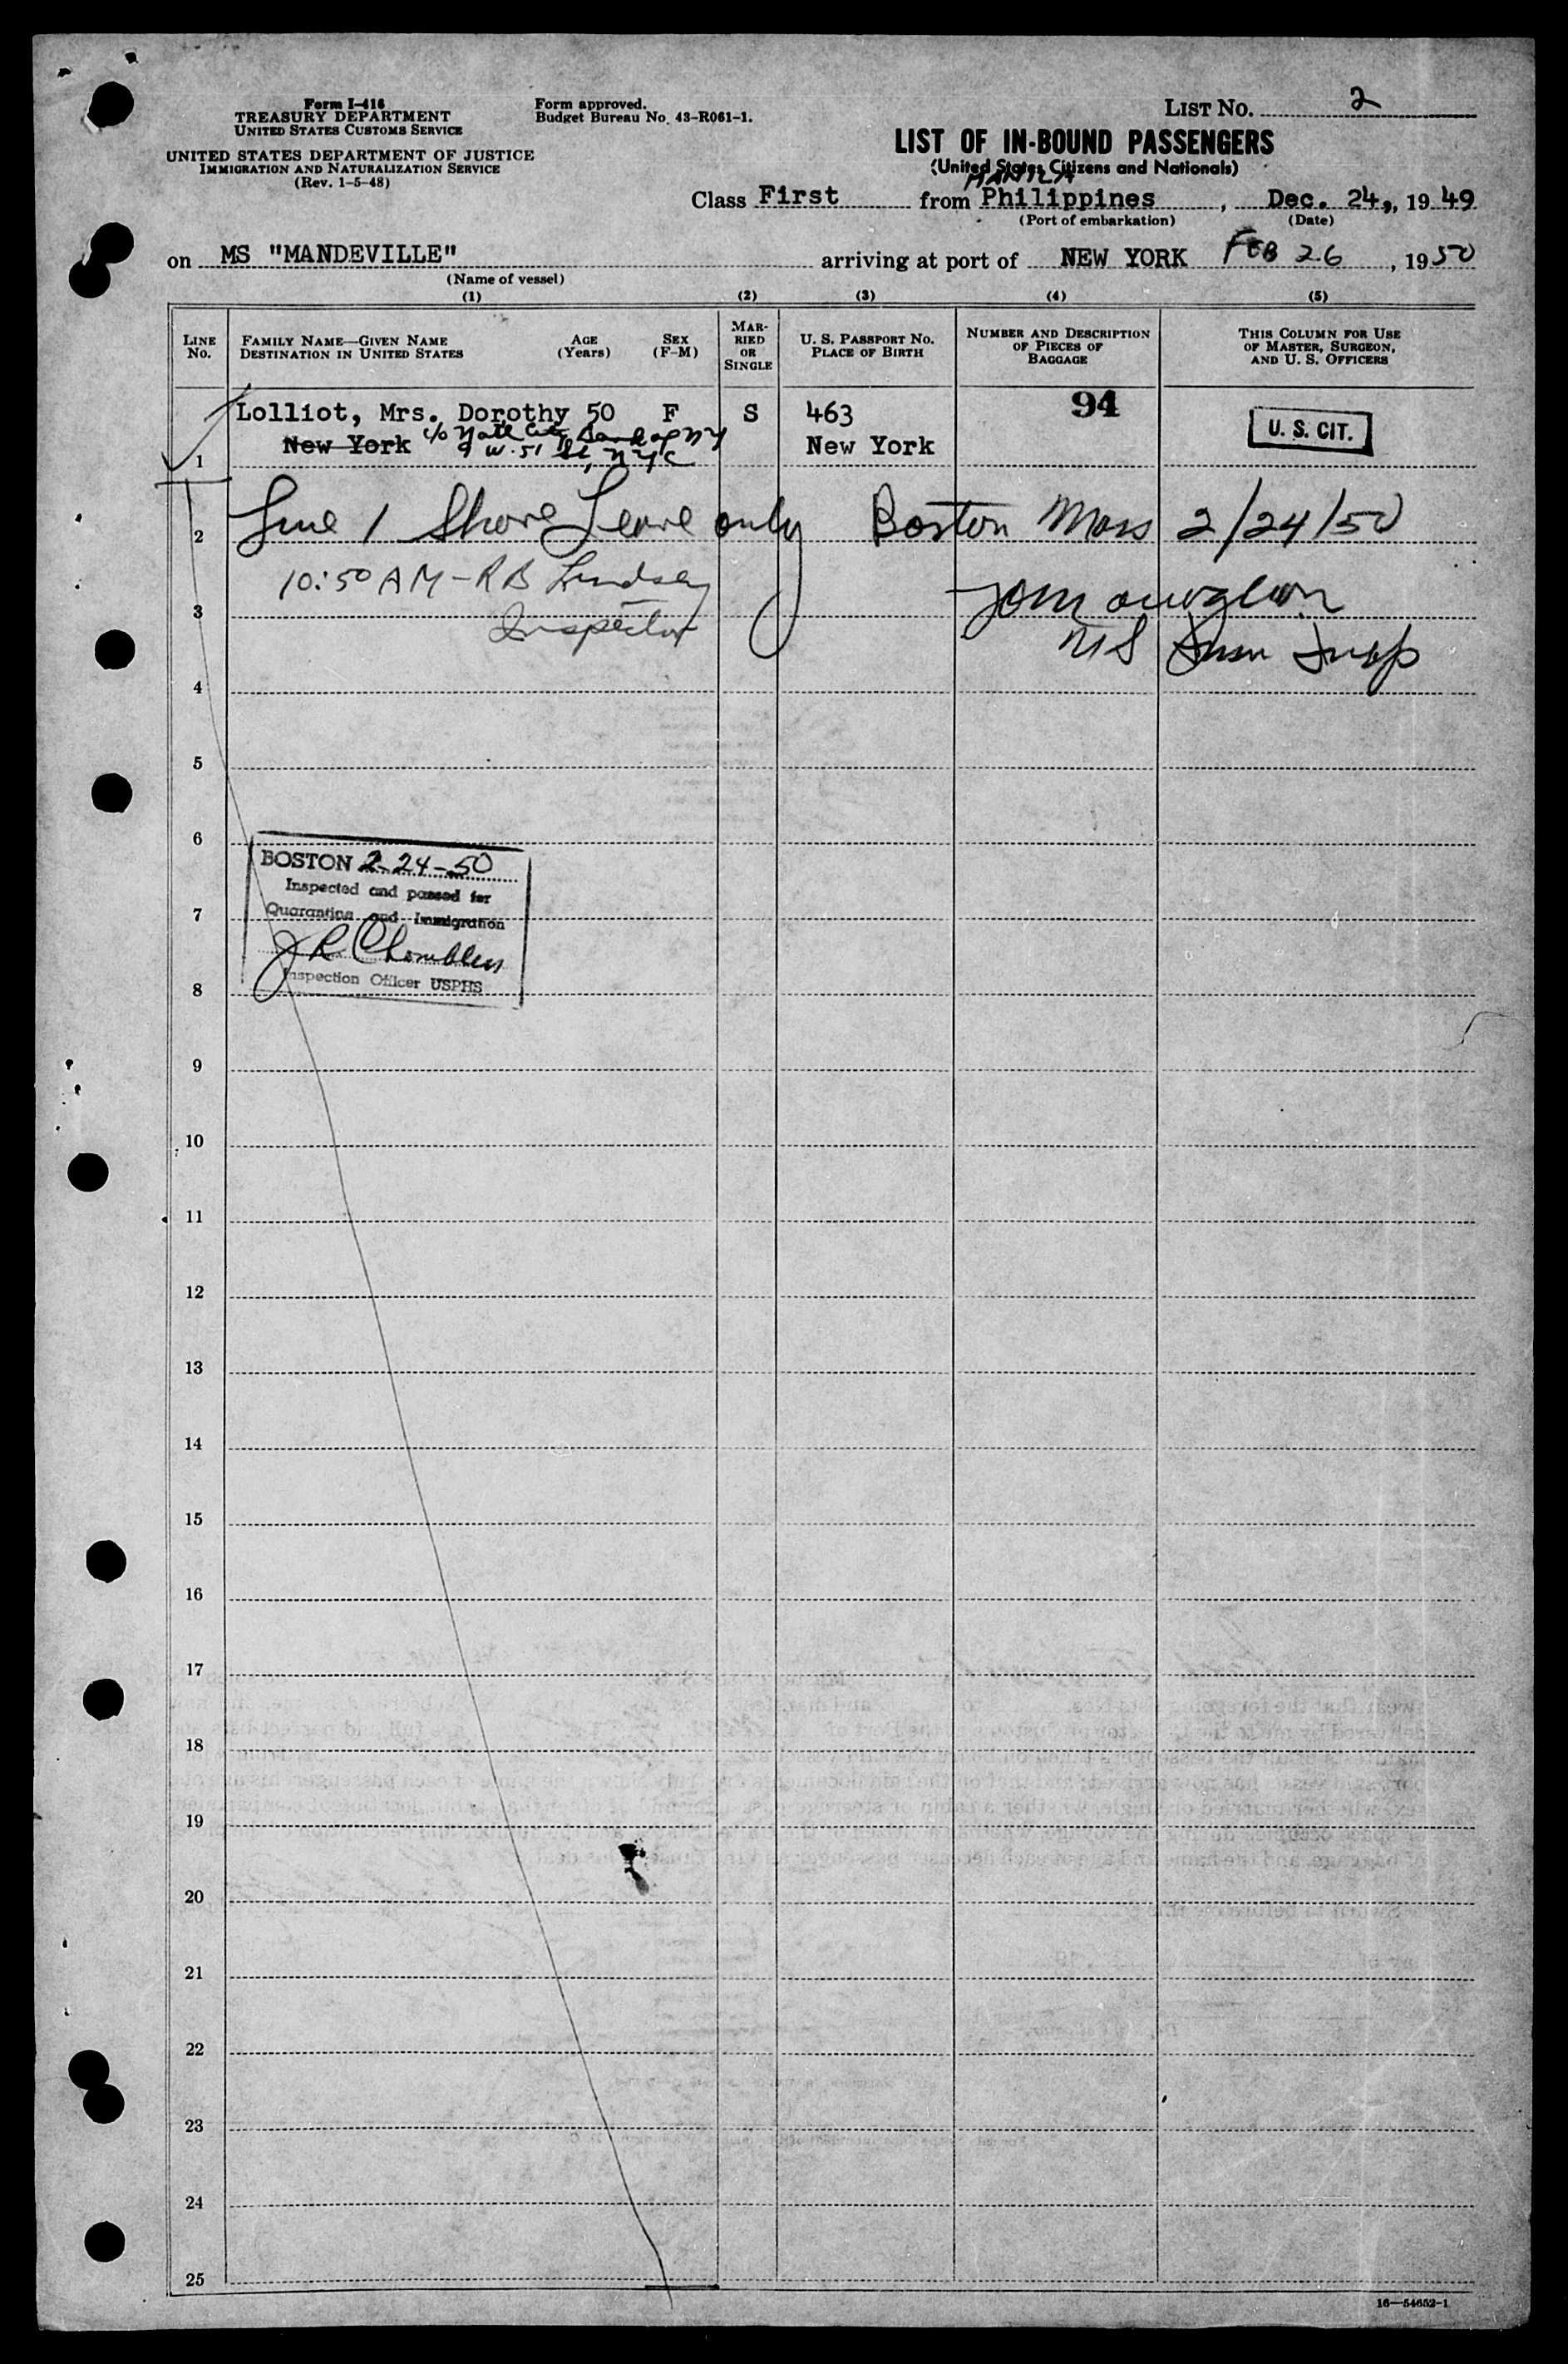 Form I-416
TREASURY DEPARTMENT
UNITED STATES CUSTOMS SERVICE
UNITED STATES DEPARTMENT OF JUSTICE
IMMIGRATION AND NATURALIZATION SERVICE
(Rev. 1-5-48)
Form approved.
Budget Bureau No. 43-R061-1.
LIST NO. 2
LIST OF IN-BOUND PASSENGERS
(United States Citizens and Nationals)
MANILA
Class First from Philippines, Dec. 24, 1949
(Port of embarkation) (Date)
on MS "MANDEVILLE" arriving at port of NEW YORK FEB 26, 1950
(Name of vessel)
(1) (2) (3) (4) (5)
LINE No.
FAMILY NAME—GIVEN NAME
DESTINATION IN UNITED STATES
AGE
(Years)
SEX
(F-M)
MAR-
RIED
OR
SINGLE
U. S. PASSPORT No.
PLACE OF BIRTH
NUMBER AND DESCRIPTION
OF PIECES OF
BAGGAGE
THIS COLUMN FOR USE
OF MASTER, SURGEON,
AND U. S. OFFICERS
Lolliot, Mrs. Dorothy 50 F S 463 94
U. S. CIT.
New York c/o Natl City Bank of NY New York
9 W. 51 St, NYC
1
2 Line 1 Shore Leave only Boston Mass 2/24/50
10:50 AM - R B Lindsay
3
Inspector
US Imm Insp
4
5
6
BOSTON 2-24-50
Inspected and passed for
7
Quarantine and Immigration
J R Chamblers
Inspection Officer USPHS
8
9
10
11
12
13
14
15
16
17
18
19
20
21
22
23
24
25
16—54652-1